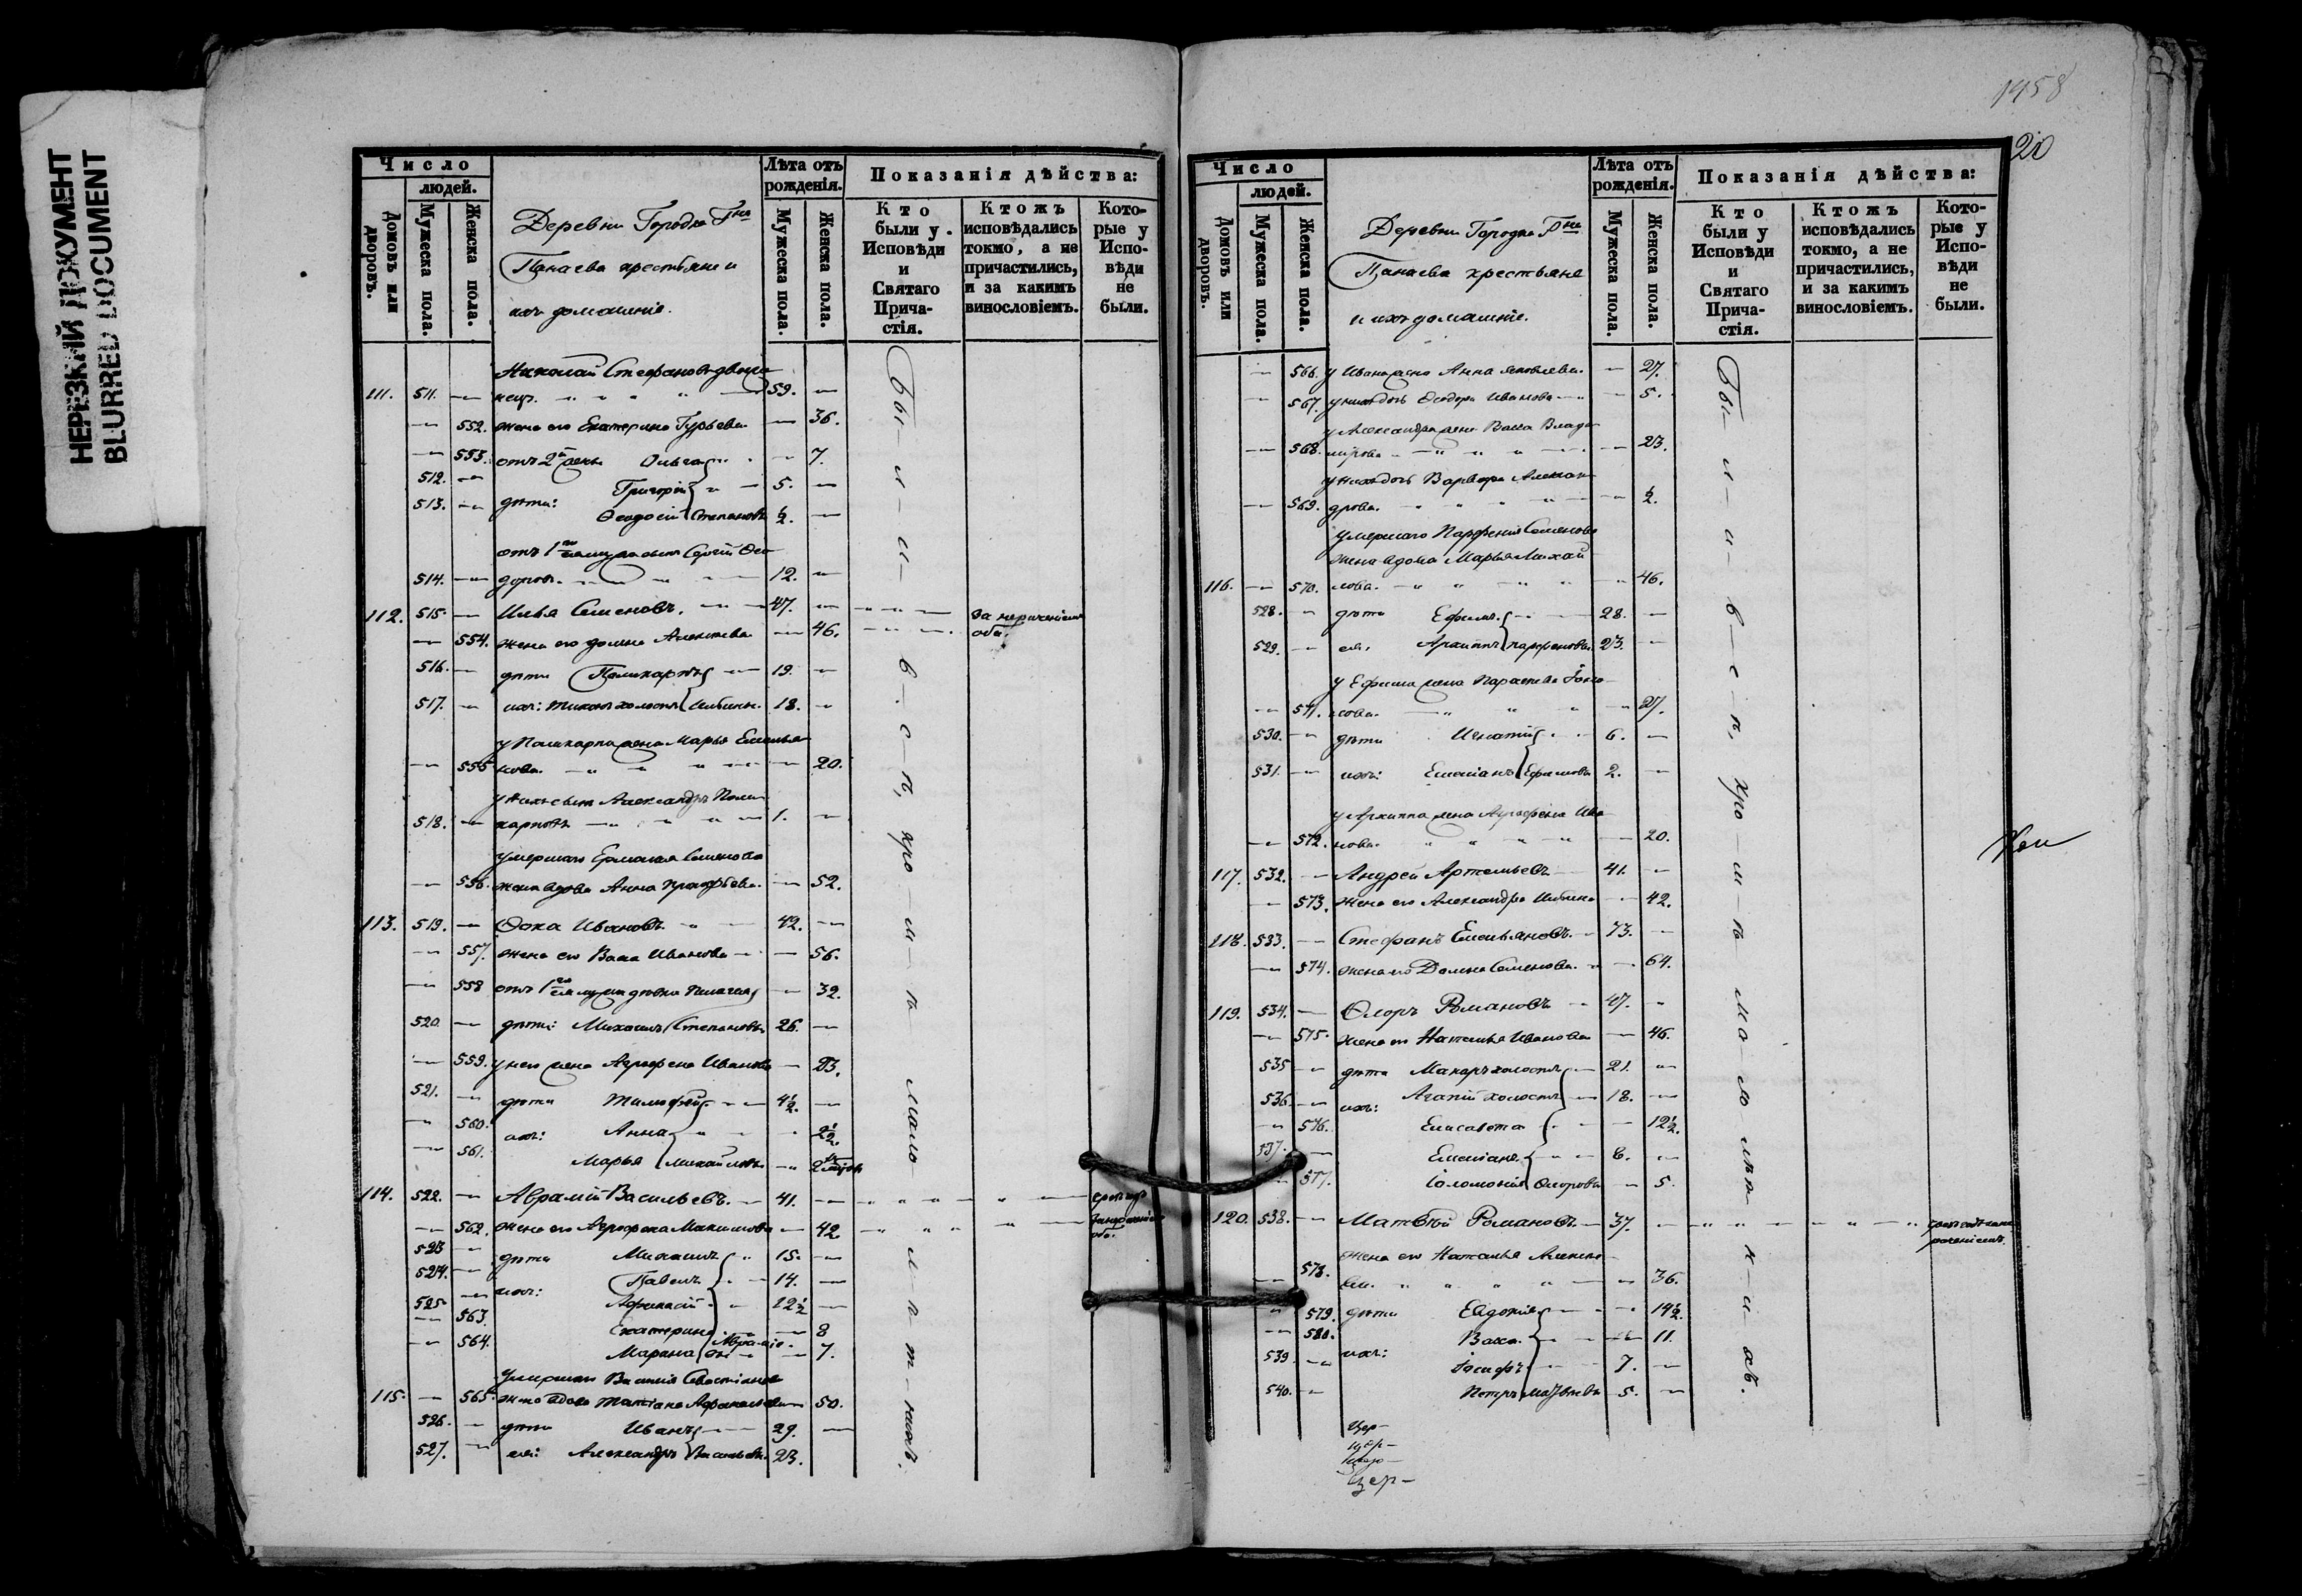 НЕРЕЗКИЙ ДОКУМЕНТ
BLURRED DOCUMENT
Число
людей.
Домовъ или дворовъ.
Мужеска пола.
Женска пола.
Деревни Городка Гна
Панаева крестьяне и
ихъ домашніе.
Лѣта отъ рожденія.
Мужеска пола.
Женска пола.
Показанія дѣйства:
Кто были у Исповѣди и Святаго Причастія.
Ктожъ исповѣдались токмо, а не причастились, и за какимъ винословіемъ.
Которые у Исповѣди не были.
Николай Стефановъ
111. 511. — — 59. —
— 552. жена его Екатерина Гурьева — 36.
— 553. отъ 2й жены Ольга — 7.
512. — Григорій 5. —
513. — дѣти: Ѳеодосій Степановы ½. —
отъ 1го мужа сынъ Сергій Ѳео-
514. — доровъ. 12. —
112. 515. — Илья Семеновъ. 47. —
— 554. жена его Домна Алексѣева — 46.
516. — дѣти Поликарпъ 19. —
517. — ихъ: Тихонъ холостъ Ильины. 18. —
у Поликарпа жена Марья Емелья-
— 555. нова. — 20.
у нихъ сынъ Александръ Поли-
518. — карповъ 1. —
умершаго Ермолая Семенова
— 556. жена вдова Анна — 52.
113. 519. — Ѳока Ивановъ. 42. —
— 557. жена его Васса Иванова — 56.
— 558 отъ 1го мужа дѣвка Пелагея — 32.
520. — дѣти: Михаилъ Степановы 26. —
— 559. у него жена Агрофена Иванова — 23.
521. — дѣти Тимофей 4½. —
— 560. ихъ: Анна — 2½.
— 561. Марья Михайловы — 2
114. 522. — Аврамій Васильевъ. 41. —
— 562. жена его Агрофена Максимова — 42
523 — дѣти Михаилъ 15. —
524. — Павелъ 14. —
525 — ихъ: Афанасій 12½ —
— 563. Екатерина — 8
— 564. Марина — 7.
умершаго Василія Севастіанова
115. — 565. жена вдова Татіана Афанасьева — 50.
526. — дѣти Иванъ 29. —
527. — ея: Александръ Васильевы. 23.
Бы-ли-и-в-с-ѣ, хро-м-ѣ мало-л-ѣ-т-нихъ.
1958
20
Число
людей.
Домовъ или дворовъ.
Мужеска пола.
Женска пола.
Деревни Городка Гна
Панаева крестьяне
и ихъ домашніе.
Лѣта отъ рожденія.
Мужеска пола.
Женска пола.
Показанія дѣйства:
Кто были у Исповѣди и Святаго Причастія.
Ктожъ исповѣдались токмо, а не причастились, и за какимъ винословіемъ.
Которые у Исповѣди не были.
— 566. у Ивана жена Анна Яковлева. — 27.
— 567. у нихъ дочь Ѳеодора Иванова — 5.
у Александра жена Васса Влади-
— 568. мірова — 23.
у нихъ дочь Варвара Алексан-
— 569. дрова. — ½.
умершаго Парфенія Семенова
жена вдова Марья Михай-
116. — 570. лова. — 46.
528. — дѣти Ефимъ 28. —
529. — ея: Архиппъ Парфеновы 23. —
у Ефима жена Параскева
— 571. — 27.
530. — дѣти Игнатій 6. —
531. — ихъ: Емеліанъ Ефимовы 2. —
у Архиппа жена Агрофена Ива-
— 572. нова. — 20.
117. 532. — Андрей Артемьевъ 41. —
— 573. жена его Александра Ильина — 42.
118. 533. — Стефанъ Емельяновъ. 73. —
— 574. жена его Домна Семенова. — 64.
119. 534. — Флоръ Романовъ 47. —
— 575. жена его Наталья Иванова — 46.
535 — дѣти Макаръ холостъ 21. —
536. — ихъ: Агапій холостъ 18. —
— 576. Елисавета — 12½.
537. — Емеліанъ 8. —
— 577. Соломонія Флоровы — 5.
120. 538. — Матвѣй Романовъ 37. —
жена его Наталья Алексѣ-
— 578. ева. — 36.
— 579. дѣти Евдокія — 14½.
— 580. Васса — 11.
539. — ихъ: Іосифъ 7. —
540. — Петръ Матвѣевы 5. —
Бы-ли-и-в-с-ѣ, хро-м-ѣ ма-ло-лѣт-н-и-хъ.
Цер-
цер-
цер-